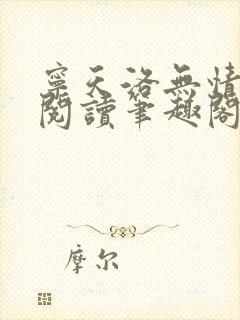 寧天洛無情
閱讀筆趣閣
摩尔